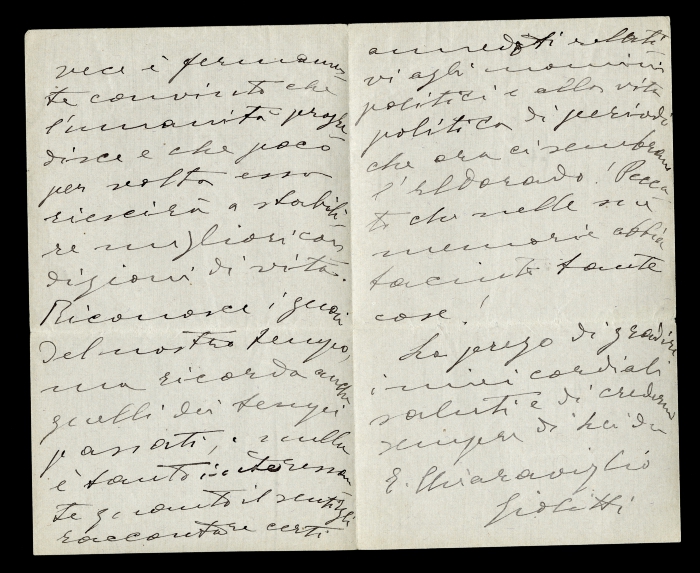 vece è fermamen
te convinto che
l'umanità progre
disce e che poco
per volta essa
riescirà a stabili
re migliori con
dizioni di vita.
Riconosce i guai
del nostro tempo,
ma ricorda anche
quelli dei tempi
passati, e nulla
è tanto interessan
te quanto il sentirgli
raccontare certi
anneddoti relati
vi agli uomini
politici e alla vita
politica di periodi
che ora ci sembrano
l'Eldorado! Pecca
to che nelle sue
memorie abbia
taciuto tante
cose!
La prego di gradire
i miei cordiali
saluti e di credermi
sempre di Lei
E. Chiaraviglio
Giolitti